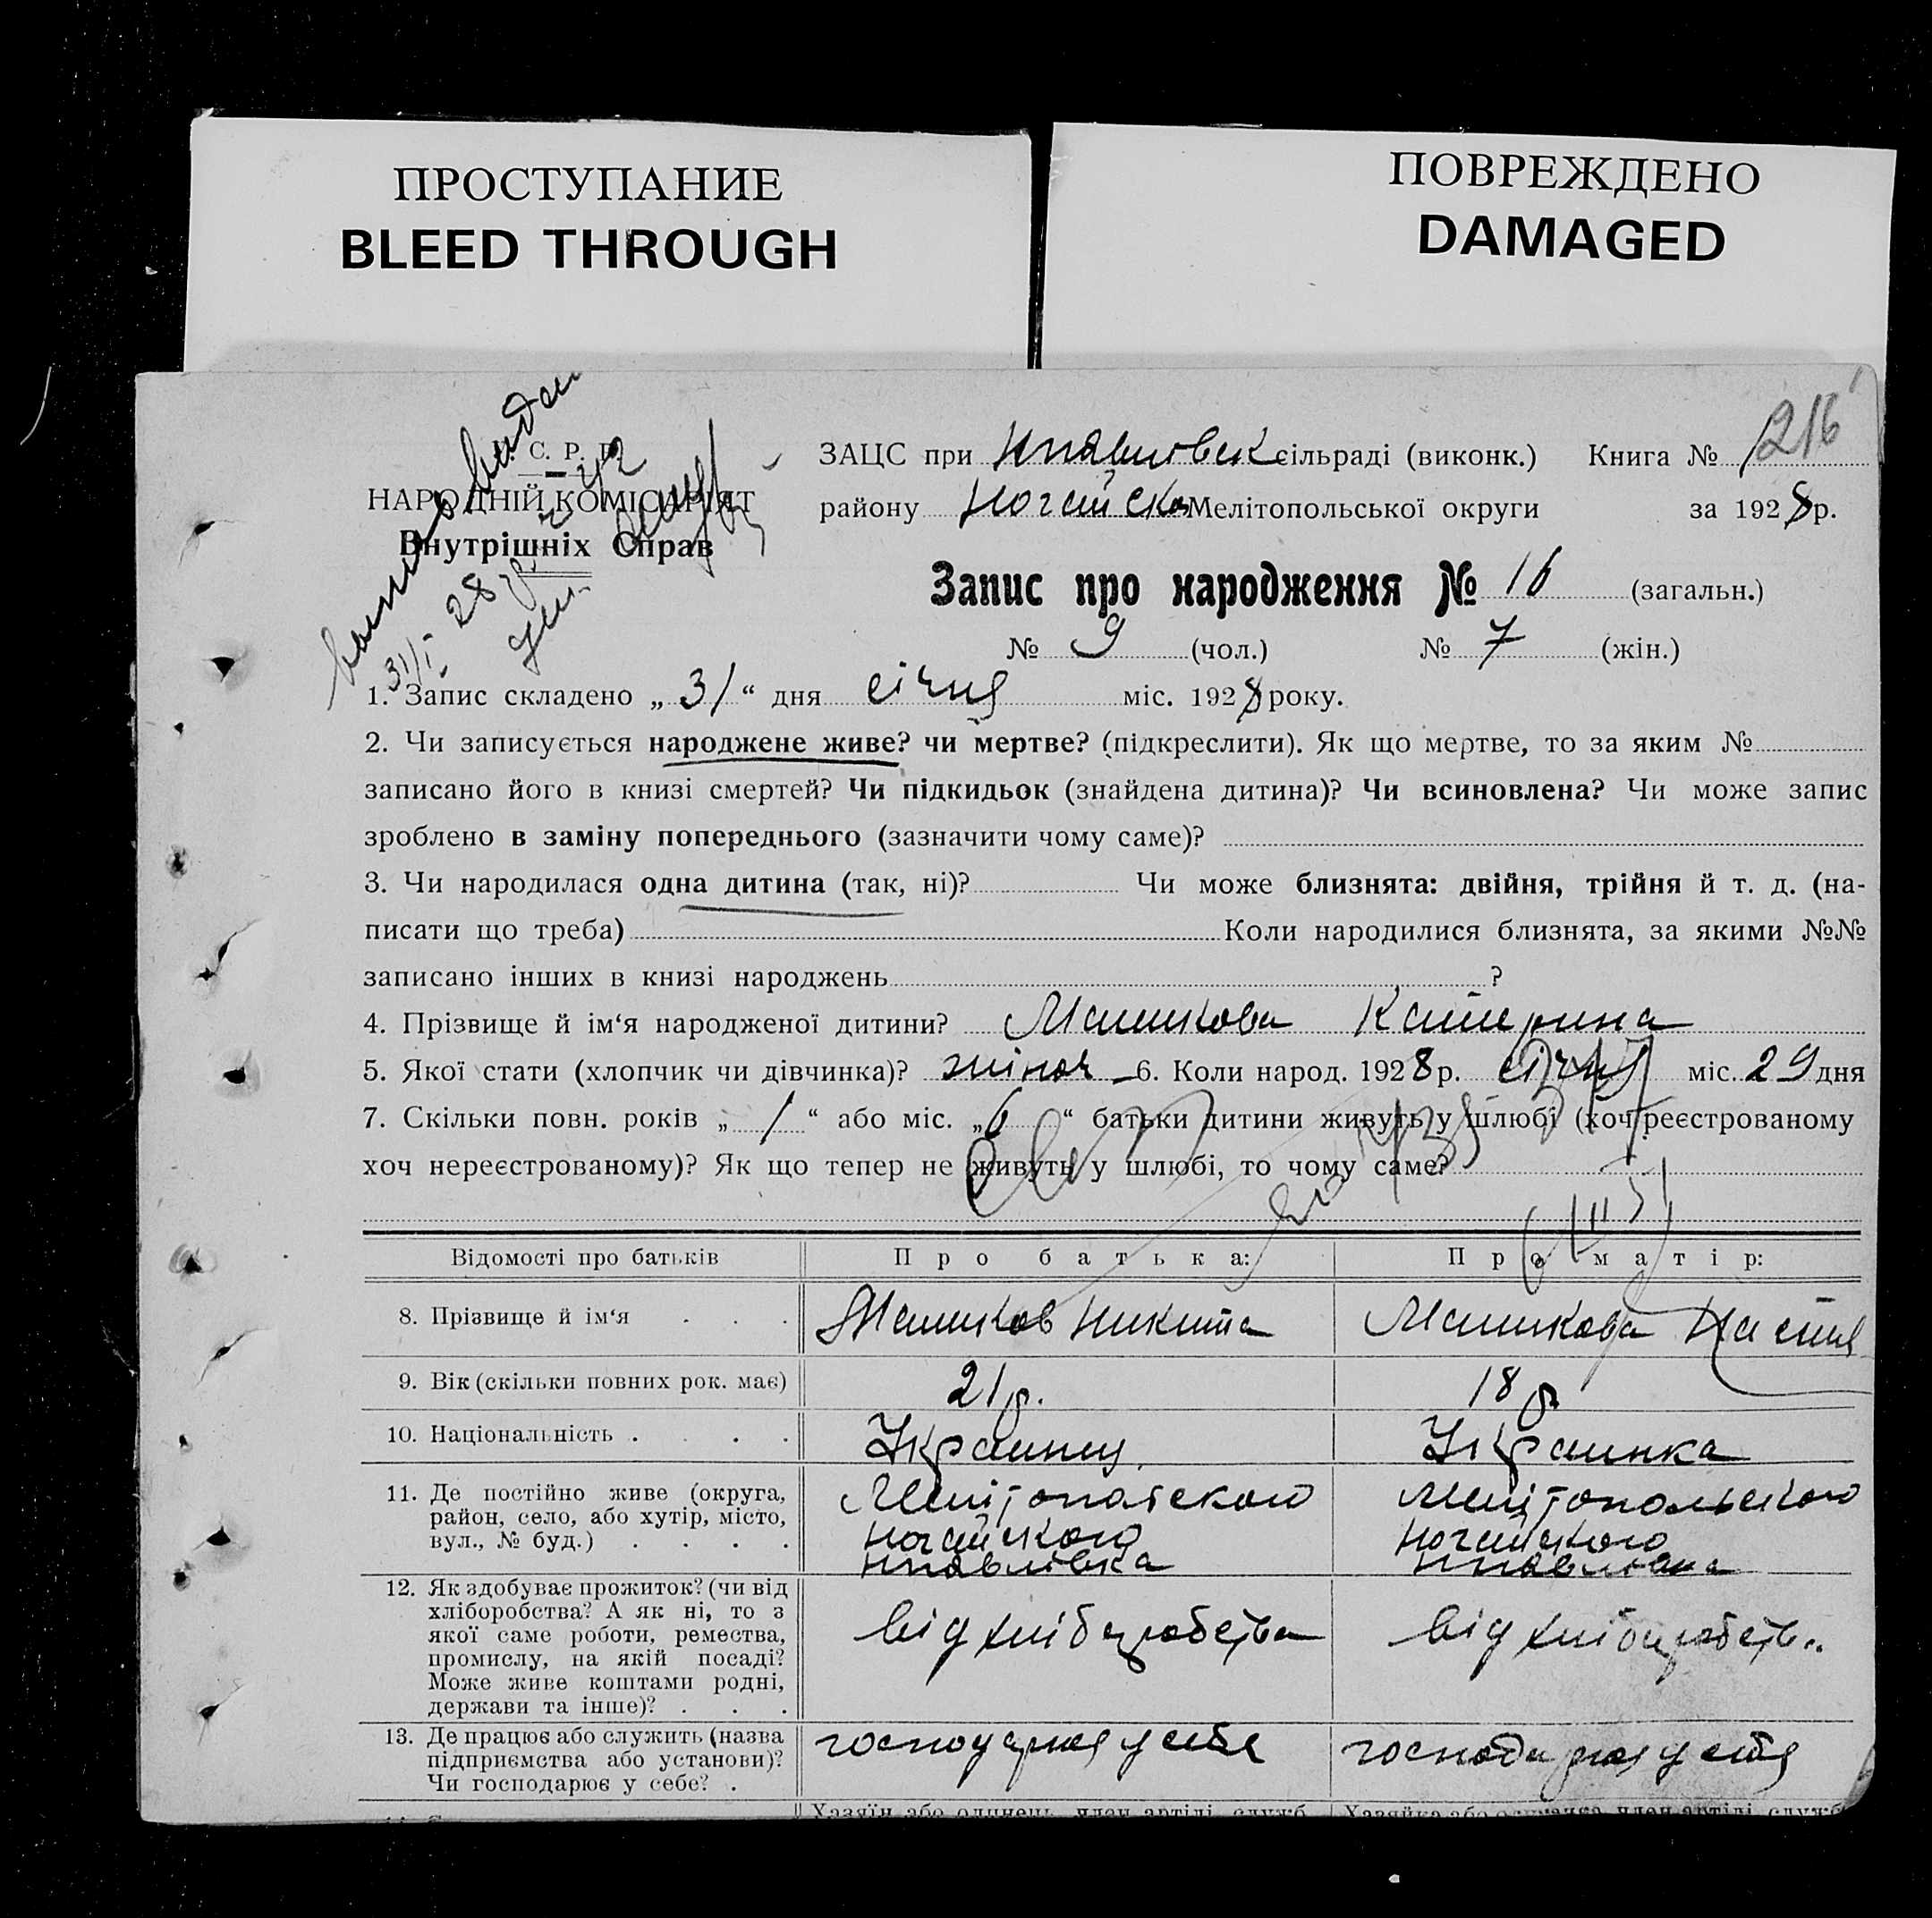 ПРОСТУПАНИЕ
BLEED THROUGH
ПОВРЕЖДЕНО
DAMAGED
216
С. Р. Р.
НАРОДНІЙ КОМІСАРІЯТ
Внутрішніх Справ
31/I 28
ЗАЦС при сільраді (виконк.) Книга №
району Ногайськ Мелітопольської округи за 1928 р.
Запис про народження № 16 (загальн.)
№ 9 (чол.) № 7 (жін.)
1. Запис складено „31“ дня січня міс. 1928 року.
2. Чи записується народжене живе? чи мертве? (підкреслити). Як що мертве, то за яким №
записано його в книзі смертей? Чи підкидьок (знайдена дитина)? Чи всиновлена? Чи може запис
зроблено в заміну попереднього (зазначити чому саме)?
3. Чи народилася одна дитина (так, ні)? Чи може близнята: двійня, трійня й т. д. (на-
писати що треба) Коли народилися близнята, за якими №№
записано інших в книзі народжень ?
4. Прізвище й ім‘я народженої дитини? Машкова Катерина
5. Якої стати (хлопчик чи дівчинка)? жіноч 6. Коли народ. 1928 р. січня міс. 29 дня
7. Скільки повн. років „1“ або міс. „6“ батьки дитини живуть у шлюбі (хоч реєстрованому
хоч нереєстрованому)? Як що тепер не живуть у шлюбі, то чому саме?
Відомості про батьків Про батька: Про матір:
8. Прізвище й ім‘я Машков Никита Машкова Настя
9. Вік (скільки повних рок. має) 21 р. 18 р.
10. Національність Украинец Украинка
11. Де постійно живе (округа,
район, село, або хутір, місто,
вул., № буд.)
Мелітопольского Мелітопольского
Ногайского Ногайского
12. Як здобуває прожиток? (чи від
хліборобства? А як ні, то з
якої саме роботи, ремества,
промислу, на якій посаді?
Може живе коштами родні,
держави та інше)?
від хліборобства від хліборобств
13. Де працює або служить (назва
підприємства або установи)?
Чи господарює у себе?
господарює у себе господарює у себе
Хазяїн або одинець, член артілі, служб